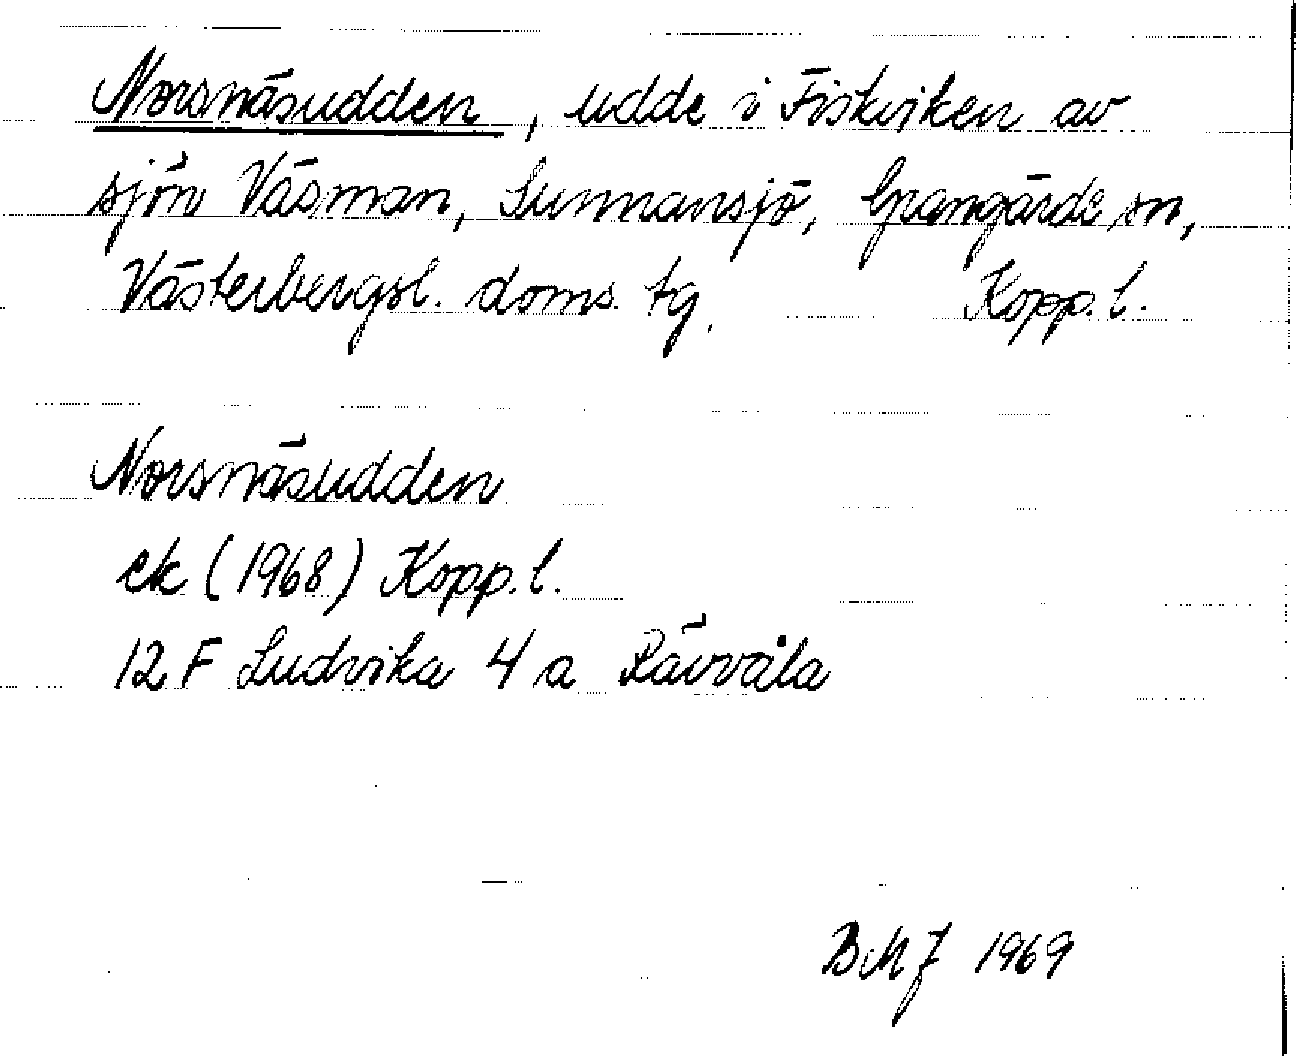 Norsnäsudden, udde i Fiskviken av
sjön Väsman, Sunnansjö, Grangärde sn,
Västerbergsl. doms. tg. Kopp. l.
Norsnäsudden
ek (1968) Kopp. l.
12 F Ludvika 4 a Rävvåla
BMJ 1969